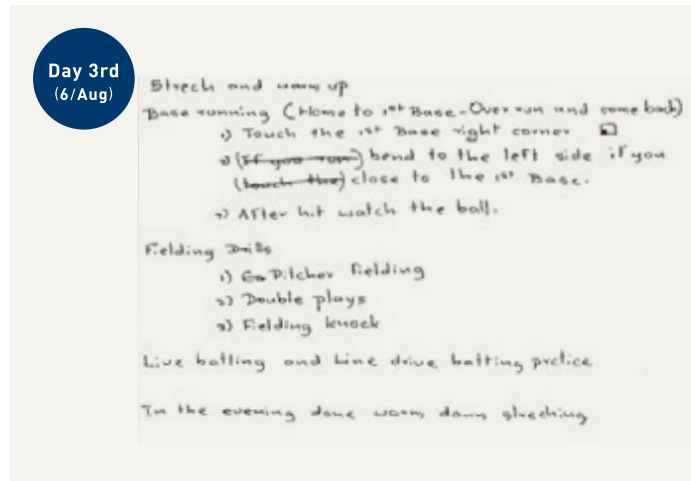 Day 3rd
(6/Aug)
Strech and warm up
Base running (Home to 1st Base-Over run and come back)
1) Touch the 1st Base right corner
2) (If you run) bend to the left side if you
(touch the) close to the 1st Base.
3) After hit watch the ball.
Fielding Drills
1) Pitcher fielding
2) Double plays
3) Fielding knock
Live batting and Line drive batting prctice
In the evening done warm down streching